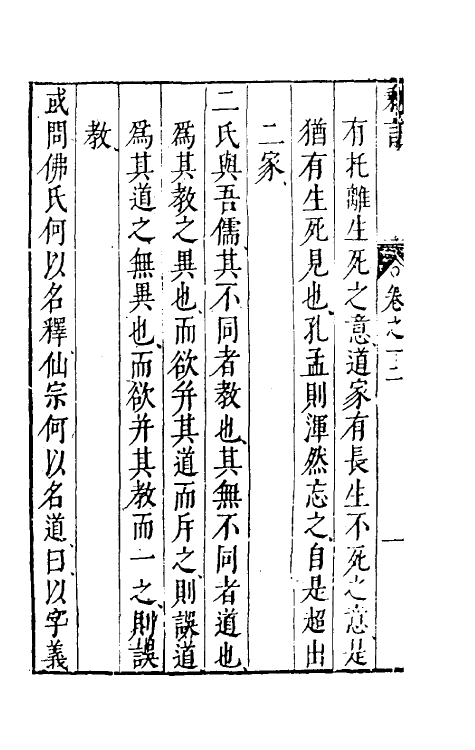 剩言
卷之十二
一
有托離生死之意道家有長生不死之意是
猶有生死見也孔孟則渾然忘之自是超出
二家
二氏與吾儒其不同者教也其無不同者道也
爲其教之異也而欲并其道而斥之則誤道
爲其道之無異也而欲并其教而一之則誤
教
或問佛氏何以名釋仙宗何以名道曰以字義